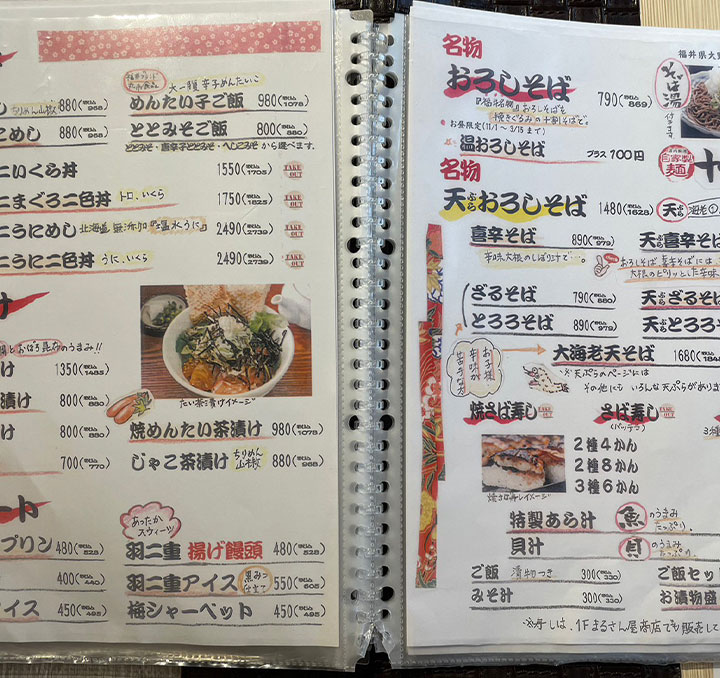 し ちりめん山椒 880(税込968)
とめし 880(税込968)
福井ブランド たれの恵み
大一腹 辛子めんたいこ
めんたい子ご飯 980(税込1078)
ととみそご飯 800(税込880)
ととみそ・喜辛子ととみそ・へしこみそ から選べます。
こいくら丼 1550(税込1705) TAKE OUT
こまぐろ二色丼 トロ、いくら 1750(税込1825) TAKE OUT
こうにめし 北海道 無添加 『塩水うに』 2490(税込2739) TAKE OUT
こうに二色丼 うに、いくら 2490(税込2739) TAKE OUT
け
とおぼろ昆布のうまみ!!
け 1350(税込1485)
漬け 800(税込880)
け 800(税込880)
700(税込770)
たい茶漬けイメージ
焼めんたい茶漬け 980(税込1078)
じゃこ茶漬け ちりめん山椒 880(税込968)
ート
プリン 480(税込528)
400(税込440)
イス 450(税込495)
あったかスウィーツ
羽二重 揚げ饅頭 480(税込528)
羽二重アイス 黒みつ仕立て 550(税込605)
梅シャーベット 450(税込495)
名物
福井県大野
おろしそば 790(税込869)
そば湯付きます
『福井名物』おろしそばを
挽きぐるみの十割そばで。
・お昼限定(11/1〜3/15まで)
温おろしそば プラス100円
自家製麺
十
名物
天ぷらおろしそば 1480(税込1628) 天ぷら 海老①
喜辛そば 890(税込979) 天ぷら喜辛そ
辛味大根のしぼり汁で…。
おろしそば 喜辛そばには
大根のピリッとした辛味
ざるそば 790(税込880) 天ぷらざるそ
とろろそば 890(税込979) 天ぷらとろろ
お子様 辛味が 苦手な方
大海老天そば 1680(税込184
※天ぷらのページには
その他にもいろんな天ぷらがあります
焼さば寿し TAKE OUT
さば寿し TAKE OUT
(バッテラ)
3種
2種4かん
2種8かん
3種6かん
焼さば寿しイメージ
特製あら汁 魚のうまみたっぷり。
貝汁 貝のうまみたっぷり。
ご飯 漬物つき 300(税込330) ご飯セッ
みそ汁 300(税込330) お漬物盛
※寿しは、1Fまるさん屋商店でも販売して